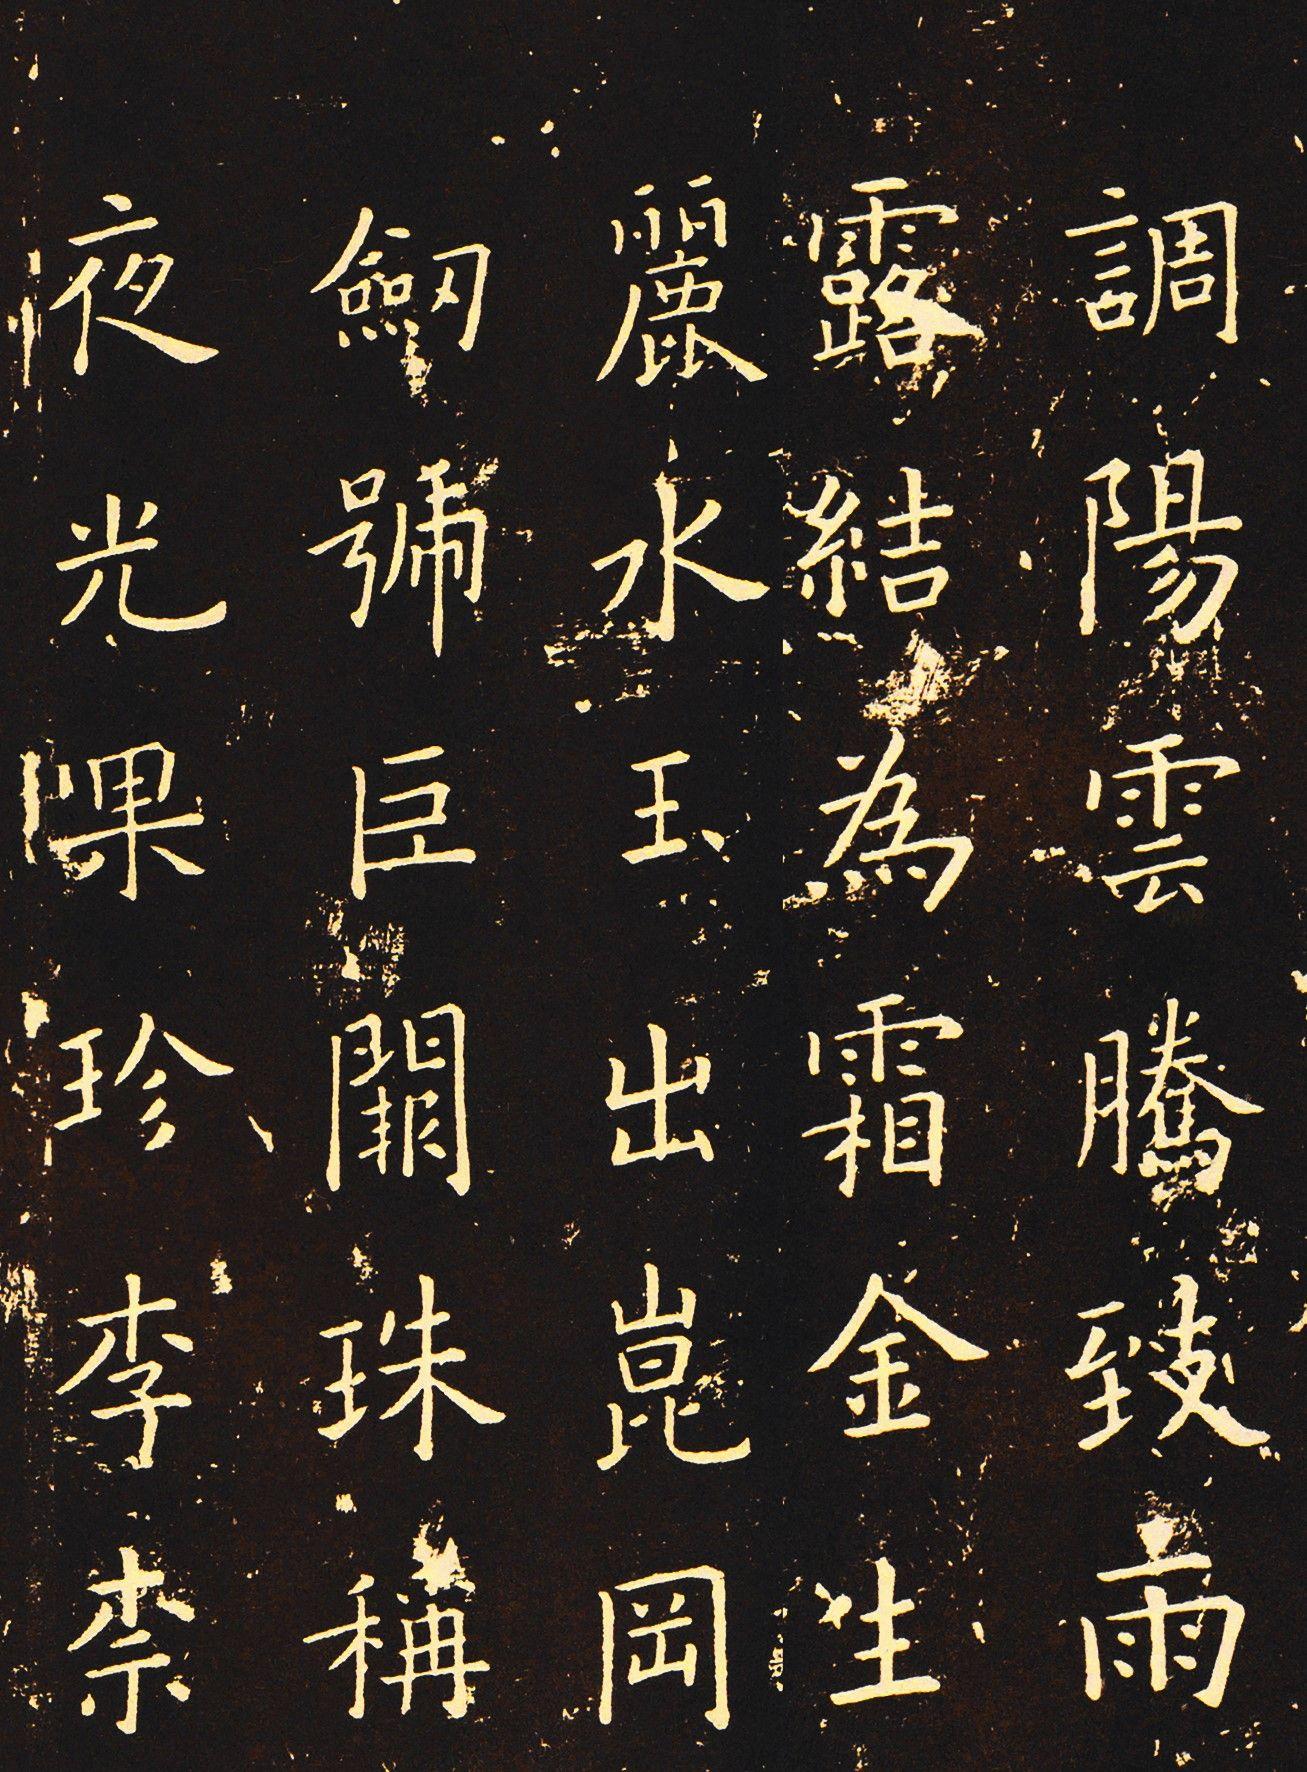 調陽雲騰致雨
露結為霜金生
麗水玉出崑岡
劒號巨闕珠稱
夜光果珍李柰